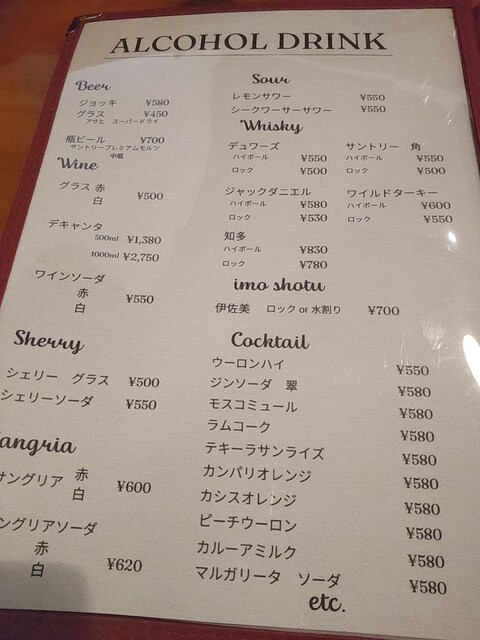 ALCOHOL DRINK
Beer
ジョッキ ¥580
グラス ¥450
アサヒ スーパードライ
瓶ビール ¥700
サントリープレミアムモルツ
中瓶
Wine
グラス 赤
白 ¥500
デキャンタ
500ml ¥1,380
1000ml ¥2,750
ワインソーダ
赤
白 ¥550
Sherry
シェリー グラス ¥500
シェリーソーダ ¥550
angria
サングリア 赤
白 ¥600
ングリアソーダ
赤
白 ¥620
Sour
レモンサワー ¥550
シークワーサーサワー ¥550
Whisky
デュワーズ
ハイボール ¥550
ロック ¥500
サントリー 角
ハイボール ¥550
ロック ¥500
ジャックダニエル
ハイボール ¥580
ロック ¥530
ワイルドターキー
ハイボール ¥600
ロック ¥550
知多
ハイボール ¥830
ロック ¥780
imo shotu
伊佐美 ロック or 水割り ¥700
Cocktail
ウーロンハイ ¥550
ジンソーダ 翠 ¥580
モスコミュール ¥580
ラムコーク ¥580
テキーラサンライズ ¥580
カンパリオレンジ ¥580
カシスオレンジ ¥580
ピーチウーロン ¥580
カルーアミルク ¥580
マルガリータ ソーダ ¥580
etc.